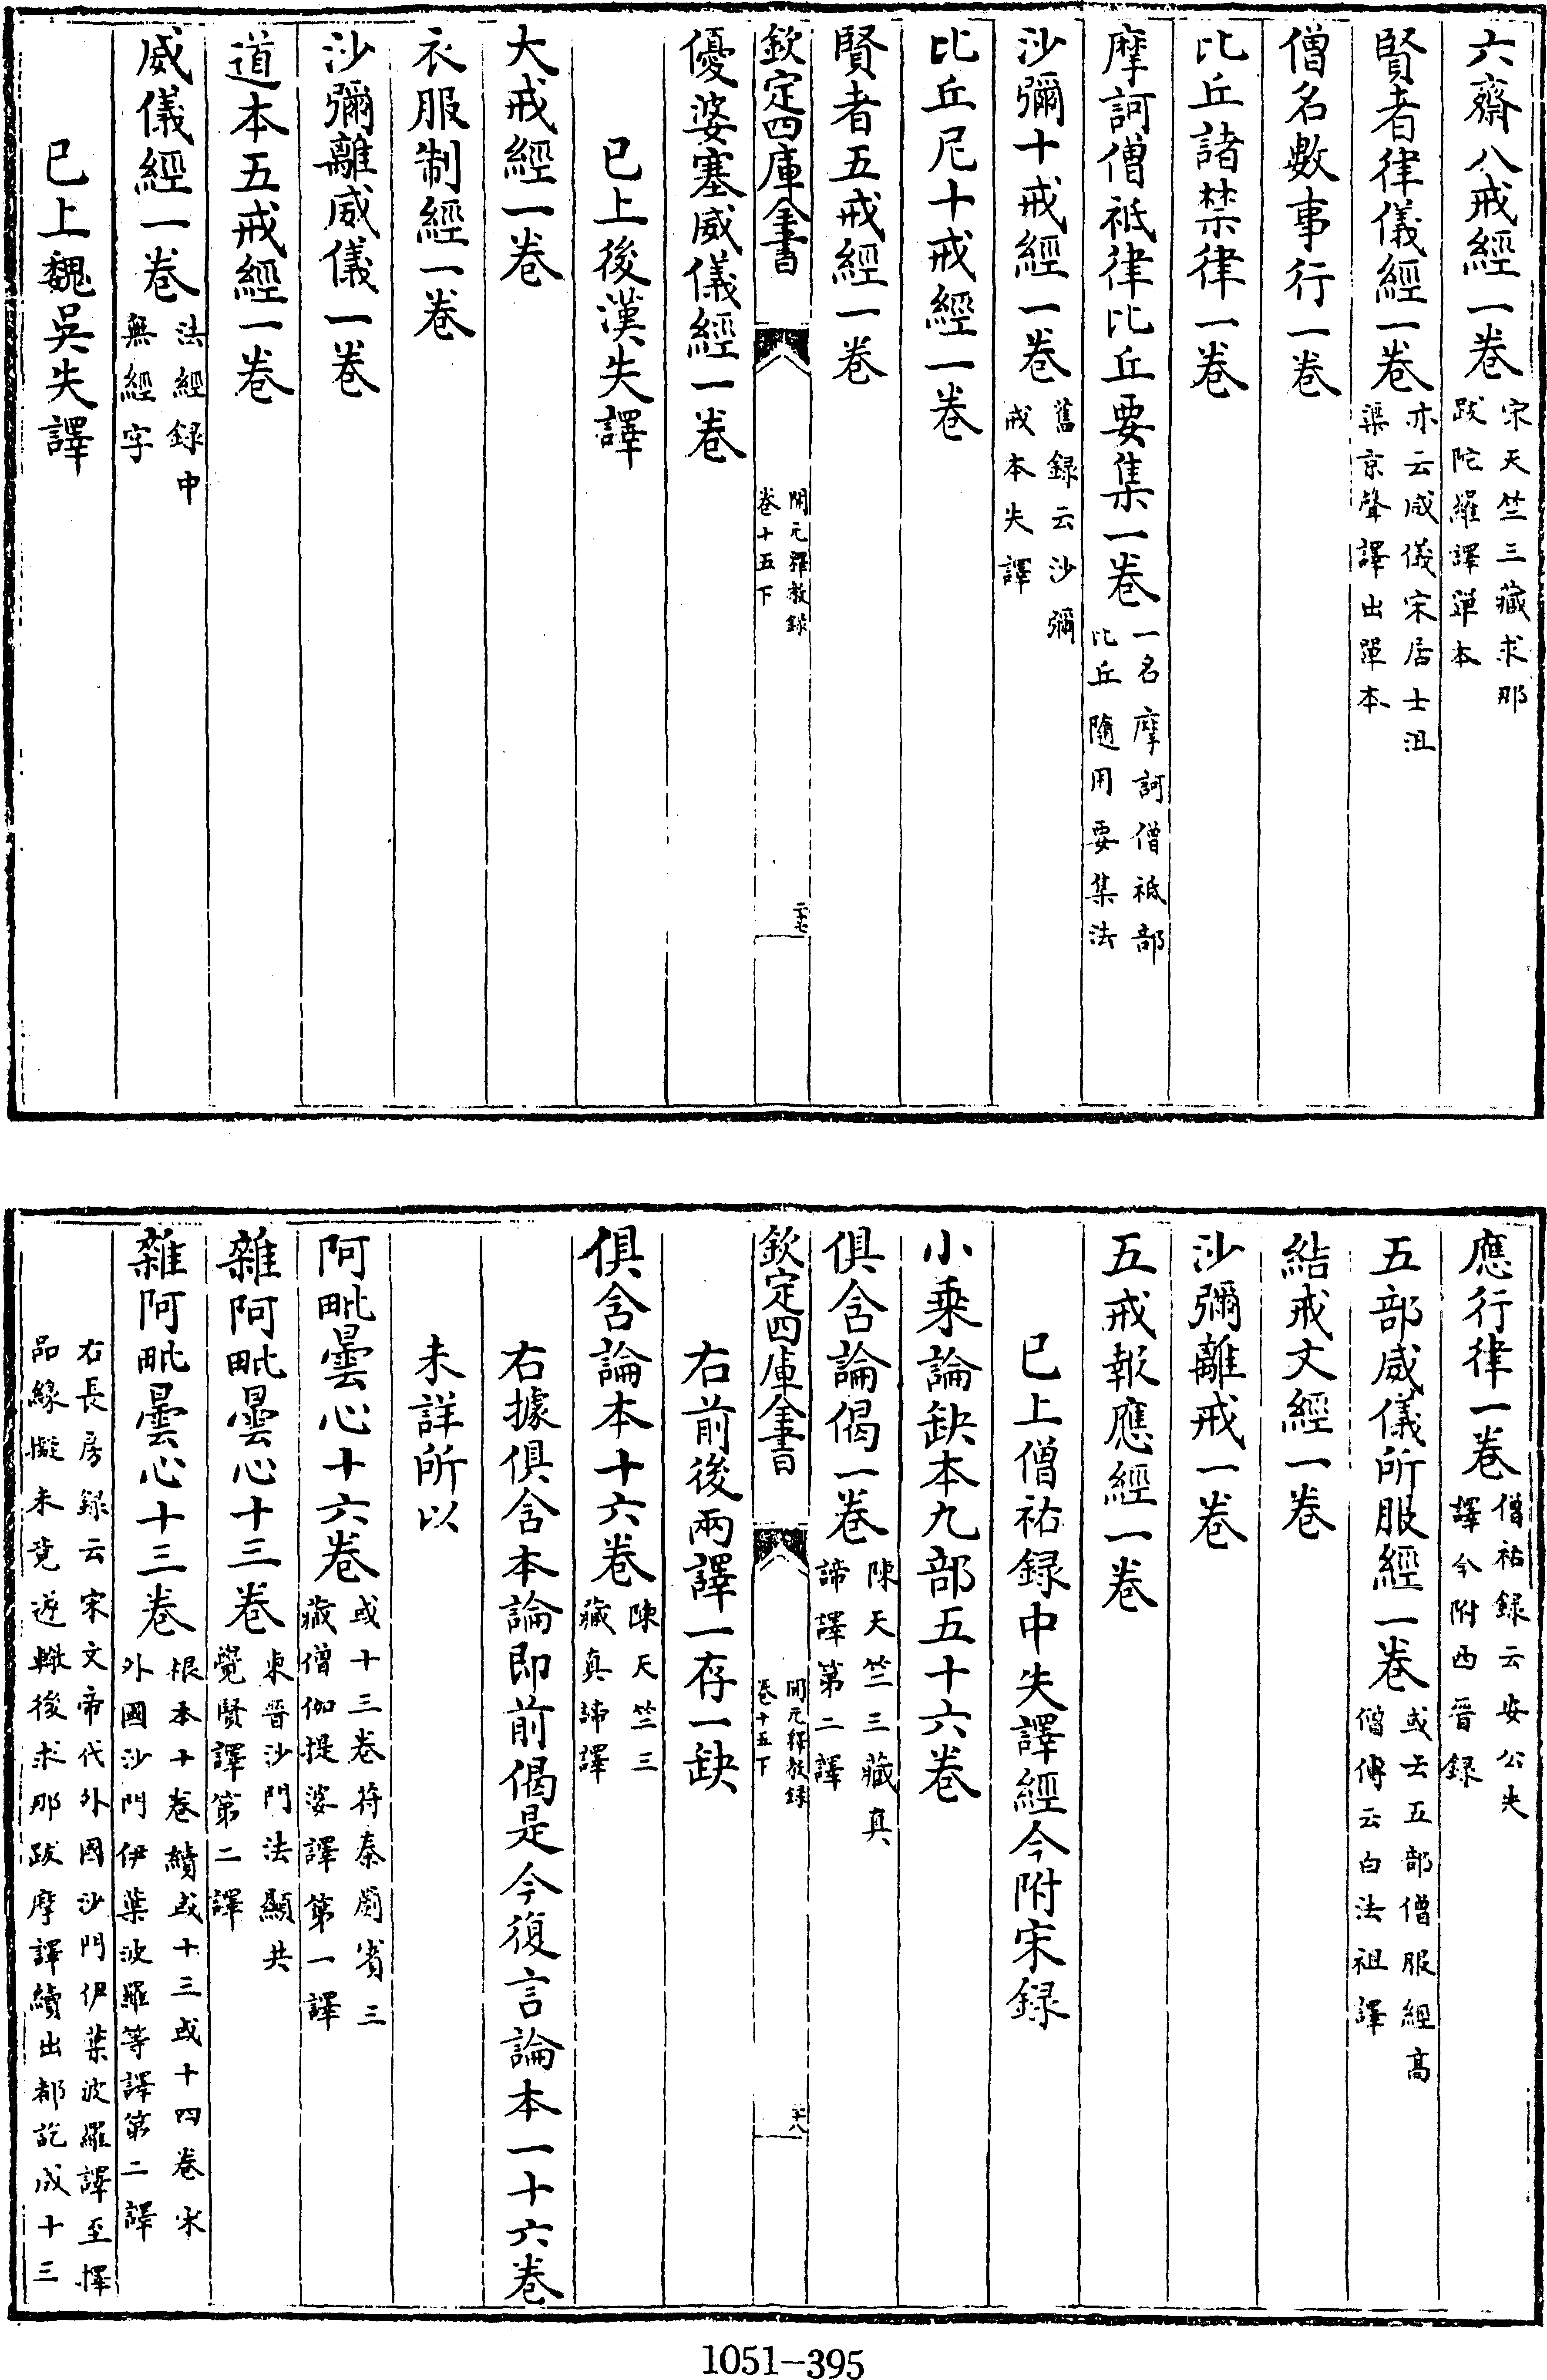 六齋八戒經一卷宋天竺三藏求那跋陀羅譯單本
賢者律儀經一卷亦云威儀宋居士沮渠京聲譯出單本
僧名數事行一卷
比丘諸禁律一卷
摩訶僧祇律比丘要集一卷一名摩訶僧祇部比丘隨用要集法
沙彌十戒經一卷舊録云沙彌戒本失譯
比丘尼十戒經一卷
賢者五戒經一卷
欽定四庫全書 開元釋教録卷十五下 二十七
優婆塞威儀經一卷
已上後漢失譯
大戒經一卷
衣服制經一卷
沙彌離威儀一卷
道本五戒經一卷
威儀經一卷法經録中無經字
已上魏吳失譯
應行律一卷僧祐録云安公失譯今附西晉録
五部威儀所服經一卷或云五部僧服經高僧傳云白法祖譯
結戒文經一卷
沙彌離戒一卷
五戒報應經一卷
已上僧祐録中失譯經今附宋録
小乘論缺本九部五十六卷
俱含論偈一卷陳天竺三藏真諦譯第二譯
欽定四庫全書 開元釋教録卷十五下 二十八
右前後兩譯一存一缺
俱含論本十六卷陳天竺三藏真諦譯
右據俱含本論即前偈是今復言論本一十六卷
未詳所以
阿毗曇心十六卷或十三卷苻秦罽賓三藏僧伽提婆譯第一譯
雜阿毗曇心十三卷東晉沙門法顯共覺賢譯第二譯
雜阿毗曇心十三卷根本十卷續或十三或十四卷宋外國沙門伊葉波羅等譯第二譯
右長房録云宋文帝代外國沙門伊葉波羅譯至擇品緣礙未竟遊轍後求那跋摩譯續出都訖成十三
1051-395